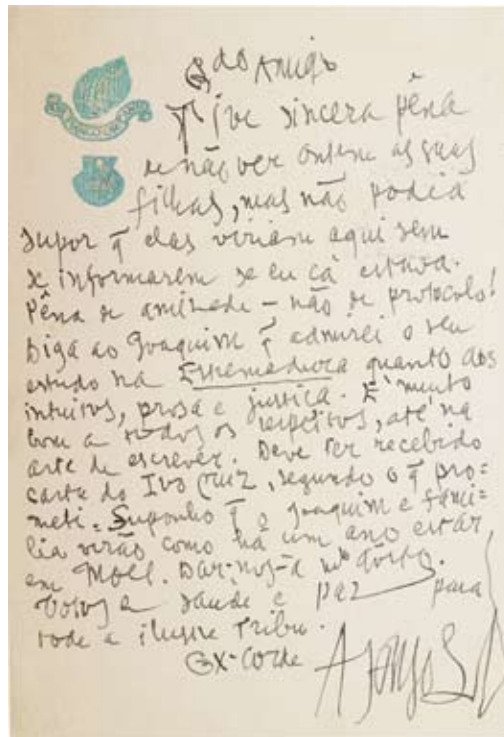 Qdo Amigo
Tive sincera pêna
de não ver ontem as suas
filhas, mas não podia
supor q̃ elas viriam aqui sem
se informarem se eu cá estava.
Pêna de amizade – não de protocolo!
Diga ao Joaquim q̃ admirei o seu
estudo na Estremadura quanto aos
intuitos, prosa e justiça. É muito
bom a todos os respeitos, até na
arte de escrever. Deve ter recebido
carta do Ivo Cruz, segundo o q̃ pro-
meti. Suponho q̃ o Joaquim e famí-
lia virão como há um ano estar
em Moel. Dar-nos-á mto gosto.
Votos de saúde e paz para
toda a ilustre Tribu.